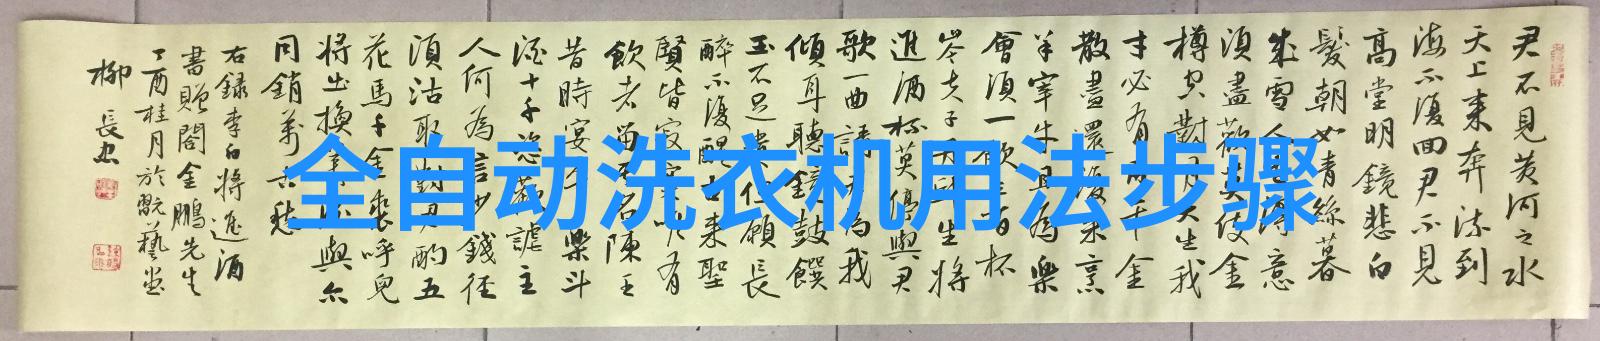 君不見黃河之水
天上來奔流到
海不復回君不見
高堂明鏡悲白
髮朝如青絲暮
成雪人生得意
須盡歡莫使金
樽空對月天生我
才必有用千金
散盡還復來烹
羊宰牛且為樂
會須一飲三百杯
岑夫子丹丘生將
進酒杯莫停與君
歌一曲請君為我
傾耳聽鐘鼓饌
玉不足貴但願長
醉不復醒古來聖
賢皆寂寞唯有
飲者留其名陳王
昔時宴平樂斗
酒十千恣歡謔主
人何為言少錢徑
須沽取對君酌五
花馬千金裘呼兒
將出換美酒與尔
同銷萬古愁
右錄李白將進酒
書贈閻金鵬先生
丁酉桂月於翫藝堂
柳長忠
全自动洗衣机用法步骤